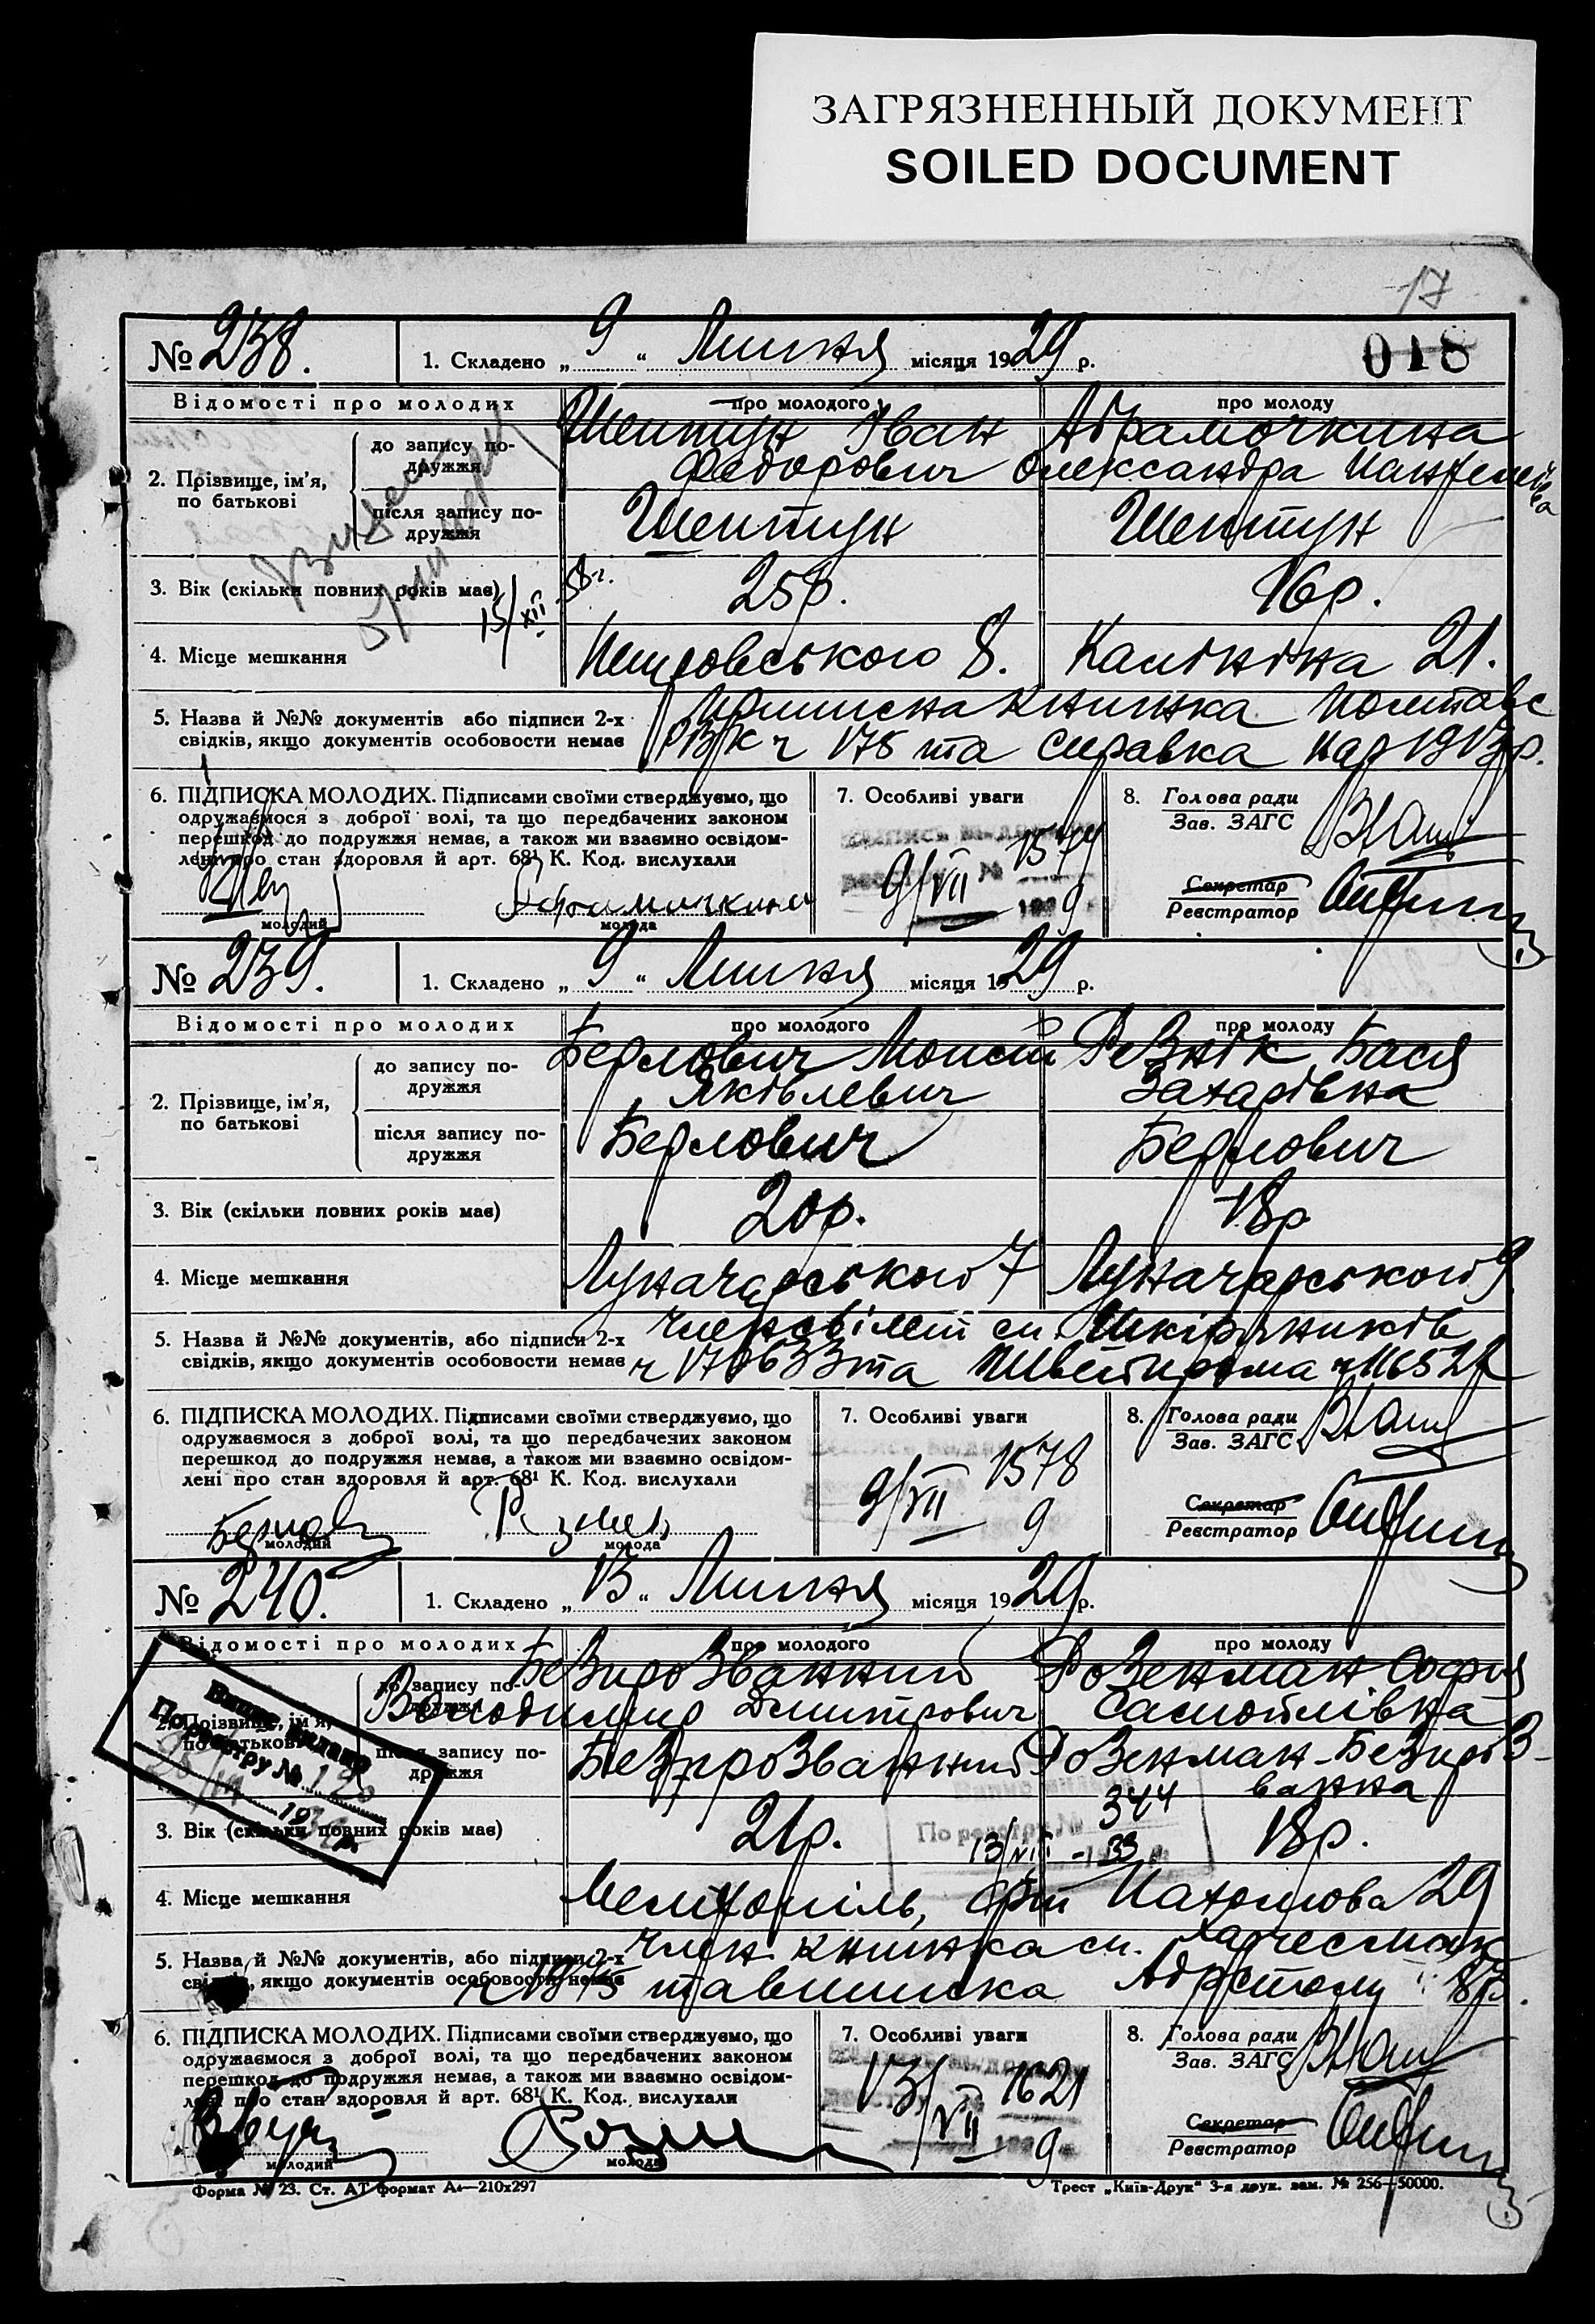 ЗАГРЯЗНЕННЫЙ ДОКУМЕНТ
SOILED DOCUMENT
17
018
№ 238. 1. Складено „ 9 “ Липня місяця 1929 р.
Відомості про молодих про молодого про молоду
2. Прізвище, ім'я, по батькові
до запису подружжя Шептун Іван Абрамочкина
Федорович Олександра
після запису подружжя Шептун Шептун
3. Вік (скільки повних років має) 25р. 16р.
15/XII 58г.
4. Місце мешкання 8. Калініна 21.
5. Назва й №№ документів або підписи 2-х Приписна книжка Полтавс
свідків, якщо документів особовости немає РВК ч 178 та справка 1913р.
6. ПІДПИСКА МОЛОДИХ. Підписами своїми стверджуємо, що
одружаємося з доброї волі, та що передбачених законом
перешкод до подружжя немає, а також ми взаємно освідом-
лені про стан здоровля й арт. 68¹ К. Код. вислухали
молодий Абрамочкина молода
7. Особливі уваги
9/VII 1579
9
8. Голова ради
Зав. ЗАГС
Секретар
Реєстратор
№ 239. 1. Складено „ 9 “ Липня місяця 1929 р.
Відомості про молодих про молодого про молоду
2. Прізвище, ім'я, по батькові
до запису подружжя Берлович Мойсій Резнік Бася
Яківлевич Захарівна
після запису подружжя Берлович Берлович
3. Вік (скільки повних років має) 20р. 18р
4. Місце мешкання Луначарського 7 Луначарського 9
5. Назва й №№ документів, або підписи 2-х членсбілет сп. Шкіряників
свідків, якщо документів особовости немає ч 170633 та
6. ПІДПИСКА МОЛОДИХ. Підписами своїми стверджуємо, що
одружаємося з доброї волі, та що передбачених законом
перешкод до подружжя немає, а також ми взаємно освідом-
лені про стан здоровля й арт. 68¹ К. Код. вислухали
молодий молода
7. Особливі уваги
9/VII 1578
9
8. Голова ради
Зав. ЗАГС
Секретар
Реєстратор
№ 240. 1. Складено „ 13 “ Липня місяця 1929 р.
Відомості про молодих про молодого про молоду
2. Прізвище, ім'я, по батькові
до запису подружжя Безпрозванний Розенман Софія
Володимир Дмитрович Самойлівна
після запису подружжя Безпрозванний Розенман-Безпроз-
ванна
По реестру № 344
13/VII - 33
3. Вік (скільки повних років має) 21р. 18р.
4. Місце мешкання Мелітопіль, 29
5. Назва й №№ документів, або підписи 2-х член. книжка сп.
свідків, якщо документів особовости немає та виписка
6. ПІДПИСКА МОЛОДИХ. Підписами своїми стверджуємо, що
одружаємося з доброї волі, та що передбачених законом
перешкод до подружжя немає, а також ми взаємно освідом-
лені про стан здоровля й арт. 68¹ К. Код. вислухали
молодий молода
7. Особливі уваги
13/VII 1621
9
8. Голова ради
Зав. ЗАГС
Секретар
Реєстратор
Форма № 23. Ст. АТ формат А₄—210х297 Трест „Київ-Друк“ 3-я друк. зам. № 256—50000.